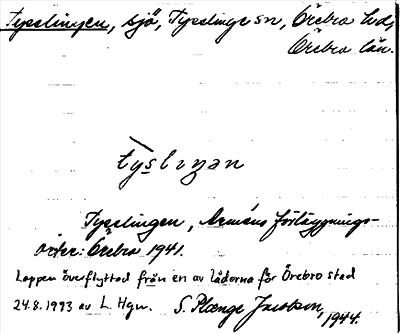 Tysslingen, sjö, Tysslinge sn, Örebro hd,
Örebro län.
tyslıŋan
Tysslingen, Arméns förläggnings-
orter: Örebro 1941.
Lappen överflyttad från en av lådorna för Örebro stad
24.8.1993 av L. Hgn. S. Plænge Jacobson,
1944.